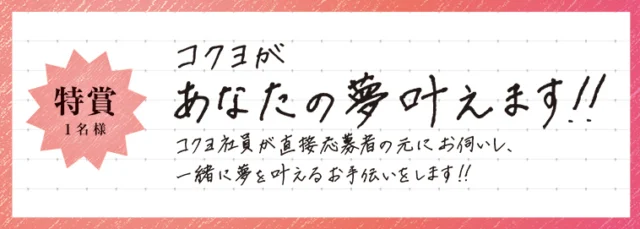 特賞
1名様
コクヨが
あなたの夢叶えます!!
コクヨ社員が直接応募者の元にお伺いし、
一緒に夢を叶えるお手伝いをします!!